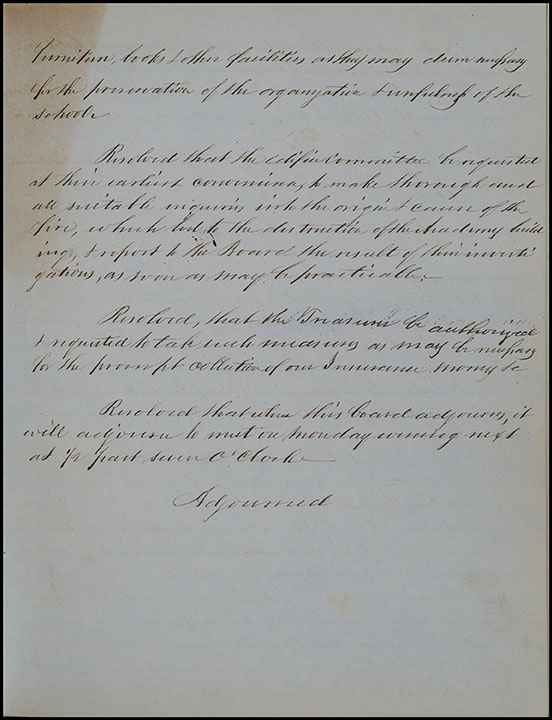 furniture, books & other facilities as they may deem necessary
for the preservation of the organization & usefulness of the
school.
Resolved that the Edifice Committee be requested
at their earliest convenience, to make thorough and
all suitable inquiries into the origin & cause of the
fire, which led to the destruction of the Academy build
ing, & report to the Board the result of their investi
gations, as soon as may be practicable.
Resolved, that the Treasurer be authorized
& requested to take such measures as may be necessary
for the prompt collection of our Insurance money &c
Resolved that when this board adjourns, it
will adjourn to meet on Monday evening next
at ½ past seven O'Clock
Adjourned